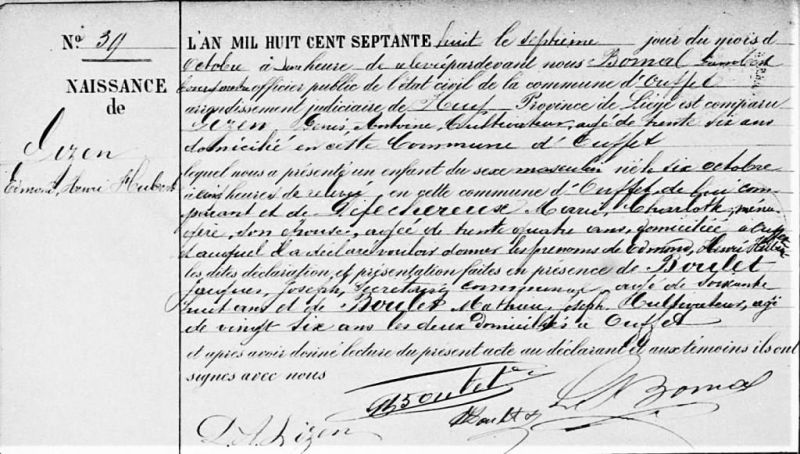 N° 39
NAISSANCE
de
Lizen
Edmond, Henri Hubert
L'AN MIL HUIT CENT SEPTANTE huit le septieme jour du mois d
Octobre à heure de relevée pardevant nous Bomal
officier public de l'état civil de la commune d'Ouffet
arrondissement judiciaire de Huy Province de Liége est comparu
Lizen Denis, Antoine, Cultivateur, agé de trente six ans
domicilié en cette Commune d'Ouffet
lequel nous a présenté un enfant du sexe masculin né le six octobre
à cinq heures de relevée en cette commune d'Ouffet, de lui com
parant et de Marie, Charlotte, ména
gère, son épouse, agée de trente quatre ans, domiciliée à Ouffet
et auquel il a déclaré vouloir donner les prénoms de Edmond, Henri Hubert
les dites déclaration et présentation faites en présence de Boulet
Jacques, Joseph, Secrétaire communal agé de soixante
huit ans et de Boulet Mathieu, Joseph, Cultivateur, agé
de vingt six ans les deux domiciliés à Ouffet
et après avoir donné lecture du présent acte au déclarant et aux témoins ils ont
signés avec nous
Boulet
Boulet
Bomal
D. A. Lizen